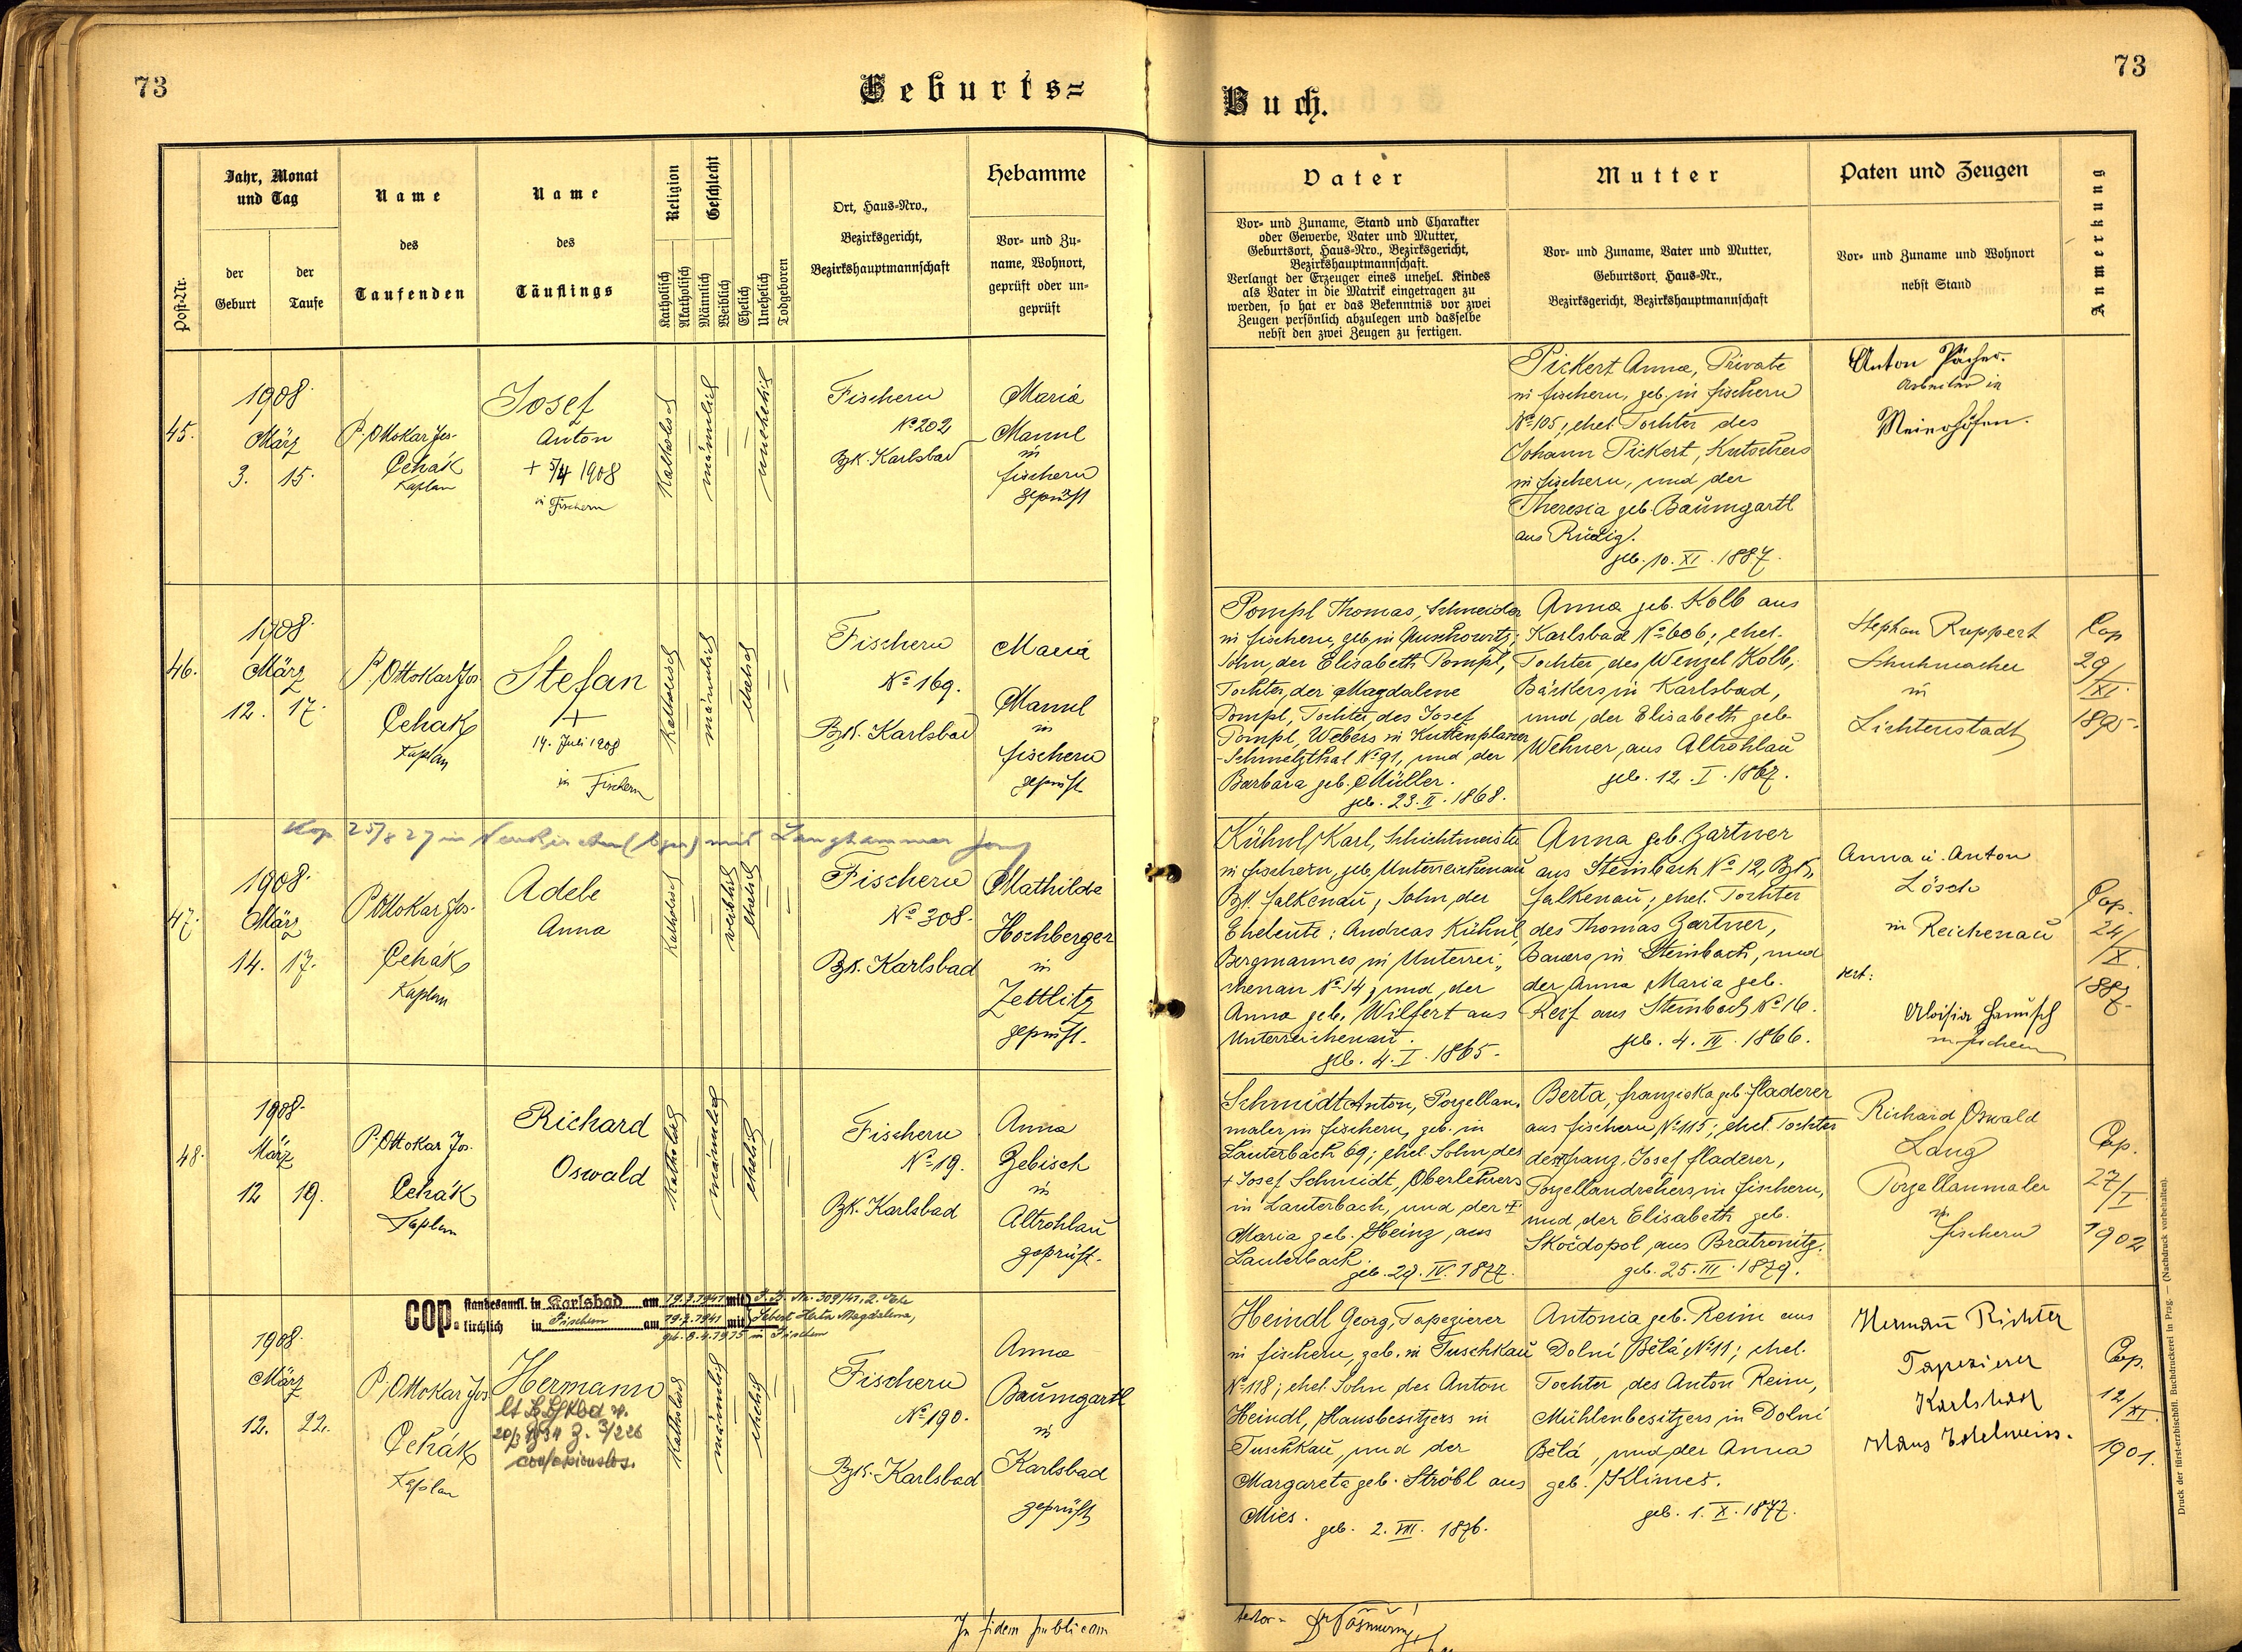 73
Geburts=
Jahr, Monat
und Tag
Name
des
Taufenden
Name
des
Täuflings
Religion
Geschlecht
Ort, Haus-Nro.,
Bezirksgericht,
Bezirkshauptmannschaft
Hebamme
Post-Nr.
der
Geburt
der
Taufe
Katholisch
Akatholisch
Männlich
Weiblich
Ehelich
Unehelich
Todgeboren
Vor- und Zu-
name, Wohnort,
geprüft oder un-
geprüft
45.
1908.
März
3. 15.
P. Ottokar Jos.
Čehák
Kaplan
Josef
Anton
+ 5/4 1908
in Fischern
Katholisch
männlich
unehelich
Fischern
No 202
Bzk. Karlsbad
Maria
Mannl
in
Fischern
geprüft
46.
1908.
März
12. 17.
P. Ottokar Jos.
Čehák
Kaplan
Stefan
+
14. Juli 1908
in Fischern
Katholisch
männlich
ehelich
Fischern
No 169.
Bzk. Karlsbad
Maria
Mannl
in
Fischern
geprüft
Kop. 25/8 27 in Neukirchen mit Langhammer
47.
1908.
März
14. 17.
P. Ottokar Jos.
Čehák
Kaplan
Adele
Anna
Katholisch
weiblich
ehelich
Fischern
No 308.
Bzk. Karlsbad
Mathilde
Hochberger
in
Zettlitz
geprüft.
48.
1908.
März
12 19.
P. Ottokar Jos.
Čehák
Kaplan
Richard
Oswald
Katholisch
männlich
ehelich
Fischern
No 19.
Bzk. Karlsbad
Anna
Zebisch
in
Altrohlau
geprüft.
cop. standesamtl. in Karlsbad am 19.7.1941 mit
kirchlich in Fischern am 19.7.1941 mit Herta Magdalena,
geb. 8.4.1915 in Fischern
1908
März
12. 22.
P. Ottokar Jos
Čehák
Kaplan
Hermann
confessionslos.
Katholisch
männlich
ehelich
Fischern
No 190.
Bzk. Karlsbad
Anna
Baumgartl
in
Karlsbad
geprüft
In fidem publicam
73
Buch.
Vater
Mutter
Paten und Zeugen
Anmerkung
Vor- und Zuname, Stand und Charakter
oder Gewerbe, Vater und Mutter,
Geburtsort, Haus-Nro., Bezirksgericht,
Bezirkshauptmannschaft.
Verlangt der Erzeuger eines unehel. Kindes
als Vater in die Matrik eingetragen zu
werden, so hat er das Bekenntnis vor zwei
Zeugen persönlich abzulegen und dasselbe
nebst den zwei Zeugen zu fertigen.
Vor- und Zuname, Vater und Mutter,
Geburtsort, Haus-Nr.,
Bezirksgericht, Bezirkshauptmannschaft
Vor- und Zuname und Wohnort
nebst Stand
Pickert Anna, Private
in Fischern, geb. in Fischern
No 105, ehel. Tochter des
Johann Pickert, Kutschers
in Fischern, und der
Theresia geb. Baumgartl
aus Rudig.
geb. 10. XI. 1887.
Anton Pächer.
Arbeiter in
Meierhöfen.
Pompl Thomas, Schneider
in Fischern, geb. in Auschowitz;
Sohn der Elisabeth Pompl,
Tochter der Magdalene
Pompl, Tochter des Josef
Pompl, Webers in Kuttenplaner
-Schmelzthal No 91, und der
Barbara geb. Müller.
geb. 23. II. 1868.
Anna geb. Kolb aus
Karlsbad No 606; ehel.
Tochter des Wenzel Kolb,
Bäckers in Karlsbad,
und der Elisabeth geb.
Wehner, aus Altrohlau
geb. 12. I. 1867.
Stephan Ruppert
Schuhmacher
in
Lichtenstadt
Cop
29/
XI.
1895.
Kühnl Karl, Schichtmeister
in Fischern, geb. Unterreichenau
Bzk. Falkenau, Sohn der
Eheleute: Andreas Kühnl,
Bergmannes in Unterrei-
chenau No 14, und der
Anna geb. Wilfert aus
Unterreichenau.
geb. 4. I. 1865.
Anna geb. Zartner
aus Steinbach No 12, Bzk.
Falkenau; ehel. Tochter
des Thomas Zartner,
Bauers in Steinbach, und
der Anna Maria geb.
Reif aus Steinbach No 16.
geb. 4. III. 1866.
Anna u. Anton
Lösch
in Reichenau
vert:
Aloisia Hanusch
in Fischern
Cop.
24/
X.
1887.
Schmidt Anton, Porzellan-
maler in Fischern, geb. in
Lauterbach 69; ehel. Sohn des
+ Josef Schmidt, Oberlehrers
in Lauterbach, und der +
Maria geb. Heinz, aus
Lauterbach.
geb. 29. IV. 1877.
Berta, Franziska geb. Fladerer
aus Fischern No 115; ehel. Tochter
des Franz Josef Fladerer,
Porzellandrehers in Fischern,
und der Elisabeth geb.
Skočdopol, aus Bratronitz.
geb. 25. III. 1879.
Richard Oswald
Lang
Porzellanmaler
in
Fischern
Cop.
27/
I
1902
Heindl Georg, Tapezierer
in Fischern, geb. in Tuschkau
No 118; ehel. Sohn des Anton
Heindl, Hausbesitzers in
Tuschkau, und der
Margareta geb. Ströbl aus
Mies.
geb. 2. VIII. 1876.
Antonia geb. Reim aus
Dolní Bělá No 11; ehel.
Tochter des Anton Reim,
Mühlenbesitzers in Dolní
Bělá, und der Anna
geb. Klimeš.
geb. 1. X. 1877.
Hermann Richter
Tapezierer
Karlsbad
Haus Edelweiss.
Cop.
12/
XI.
1901.
Druck der fürst-erzbischöfl. Buchdruckerei in Prag. — (Nachdruck vorbehalten).